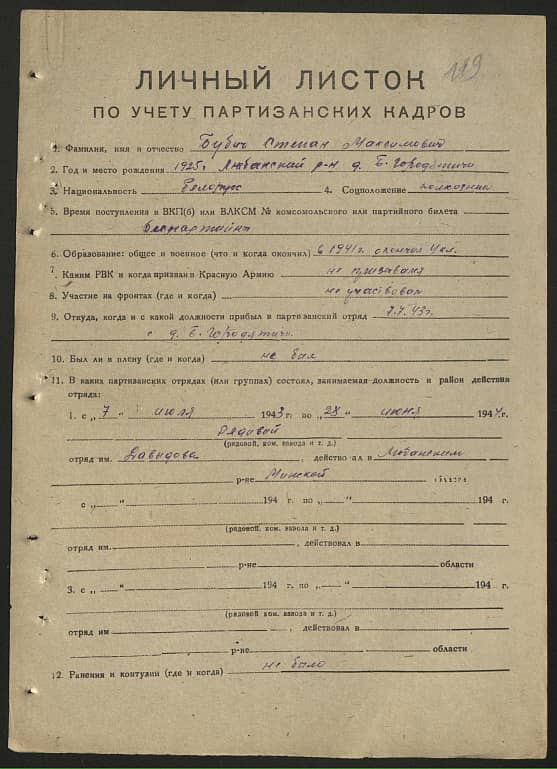 119
ЛИЧНЫЙ ЛИСТОК
ПО УЧЕТУ ПАРТИЗАНСКИХ КАДРОВ
1. Фамилия, имя и отчество Бубич Степан Максимович
2. Год и место рождения 1925г Любанский р-н д. Б-Городятичи
3. Национальность Белорус 4. Соцположение колхозник
5. Время поступления в ВКП(б) или ВЛКСМ № комсомольского или партийного билета
Беспартийн
6. Образование: общее и военное (что и когда окончил) в 1941г. окончил 4 кл.
7. Каким РВК и когда призван в Красную Армию не призывался
8. Участие на фронтах (где и когда) не участвовал
9. Откуда, когда и с какой должности прибыл в партизанский отряд 7.7.43г.
с д. Б-Городятичи
10. Был ли в плену (где и когда) не был
11. В каких партизанских отрядах (или группах) состоял, занимаемая должность и район действия
отряда:
1. с „ 7 " июля 1943 г. по „28 " июня 1944 г.
Рядовой
(рядовой, ком. взвода и т. д.)
отряд им. Давыдова , действовал в Любанском
р-не Минской области
с „ " 194 г. по „ " 194 г.
(рядовой, ком. взвода и т. д.)
отряд им. , действовал в
р-не области
3. с „ " 194 г. по „ " 194 г.
(рядовой, ком. взвода и т. д.)
отряд им , действовал в
р-не области
12. Ранения и контузии (где и когда) не было